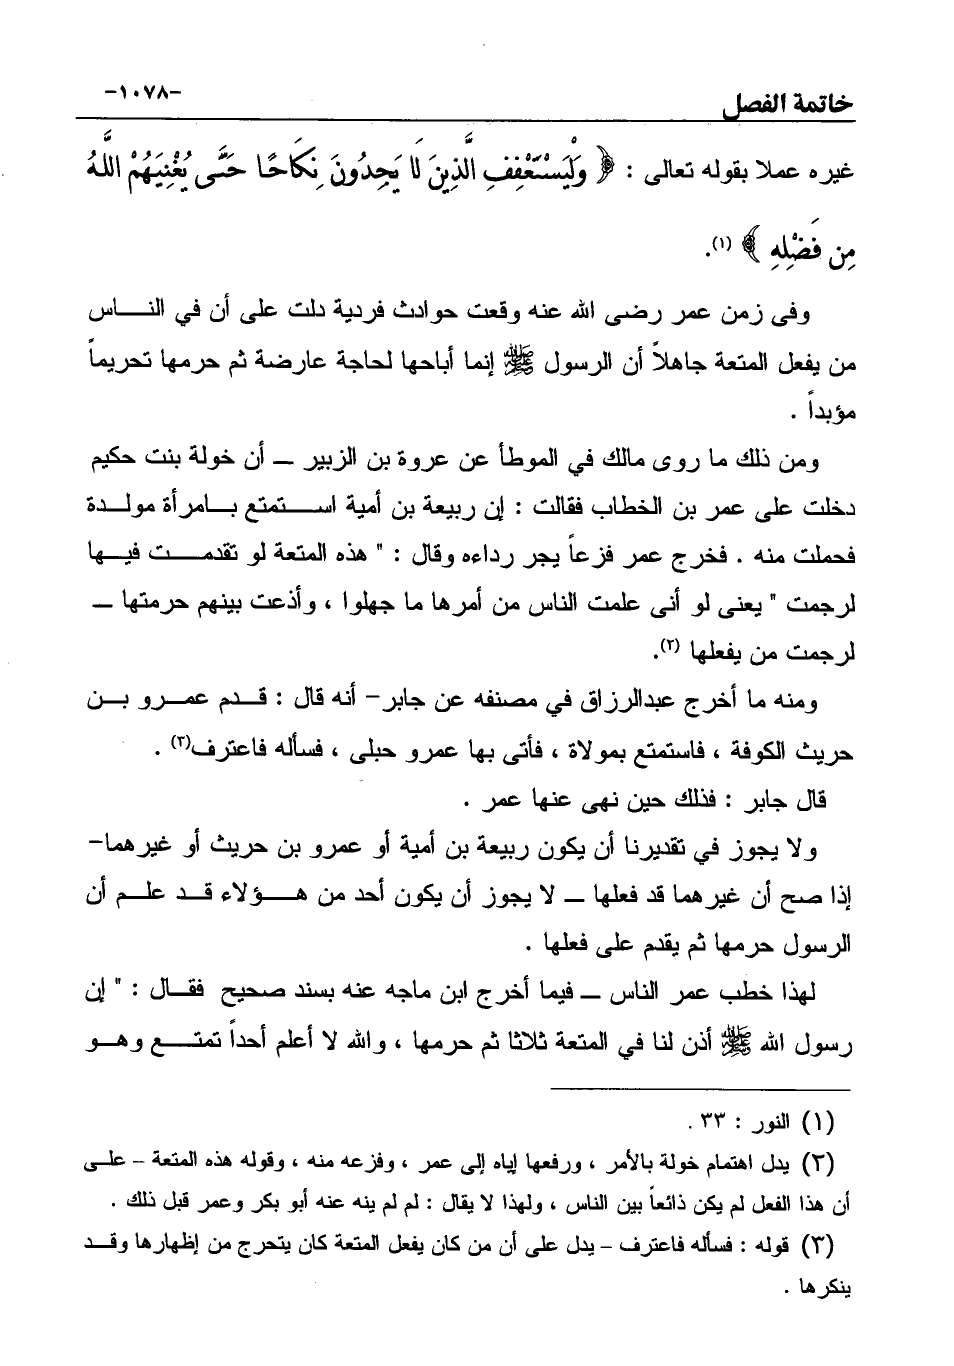 خاتمة الفصل
-١٠٧٨-
غيره عملا بقوله تعالى : ﴿ وَلْيَسْتَعْفِفِ الَّذِينَ لَا يَجِدُونَ نِكَاحًا حَتَّى يُغْنِيَهُمْ اللَّهُ
مِن فَضْلِهِ ﴾ (١).
وفى زمن عمر رضى الله عنه وقعت حوادث فردية دلت على أن في النـــاس
من يفعل المتعة جاهلاً أن الرسول ﷺ إنما أباحها لحاجة عارضة ثم حرمها تحريماً
مؤبداً .
ومن ذلك ما روى مالك في الموطأ عن عروة بن الزبير ــ أن خولة بنت حكيم
دخلت على عمر بن الخطاب فقالت : إن ربيعة بن أمية استـــمتع بـــامرأة مولـــدة
فحملت منه . فخرج عمر فزعاً يجر رداءه وقال : " هذه المتعة لو تقدمـــت فيـــها
لرجمت " يعنى لو أنى علمت الناس من أمرها ما جهلوا ، وأذعت بينهم حرمتها ــ
لرجمت من يفعلها (٢).
ومنه ما أخرج عبدالرزاق في مصنفه عن جابر- أنه قال : قـــدم عمـــرو بـــن
حريث الكوفة ، فاستمتع بمولاة ، فأتى بها عمرو حبلى ، فسأله فاعترف(٣) .
قال جابر : فذلك حين نهى عنها عمر .
ولا يجوز في تقديرنا أن يكون ربيعة بن أمية أو عمرو بن حريث أو غيرهما-
إذا صح أن غيرهما قد فعلها ــ لا يجوز أن يكون أحد من هـــؤلاء قـــد علـــم أن
الرسول حرمها ثم يقدم على فعلها .
لهذا خطب عمر الناس ــ فيما أخرج ابن ماجه عنه بسند صحيح فقـــال : " إن
رسول الله ﷺ أذن لنا في المتعة ثلاثا ثم حرمها ، والله لا أعلم أحداً تمتـــع وهـــو
(١) النور : ٣٣ .
(٢) يدل اهتمام خولة بالأمر ، ورفعها إياه إلى عمر ، وفزعه منه ، وقوله هذه المتعة – علـــى
أن هذا الفعل لم يكن ذائعاً بين الناس ، ولهذا لا يقال : لم لم ينه عنه أبو بكر وعمر قبل ذلك .
(٣) قوله : فسأله فاعترف – يدل على أن من كان يفعل المتعة كان يتحرج من إظهارها وقـــد
ينكرها .